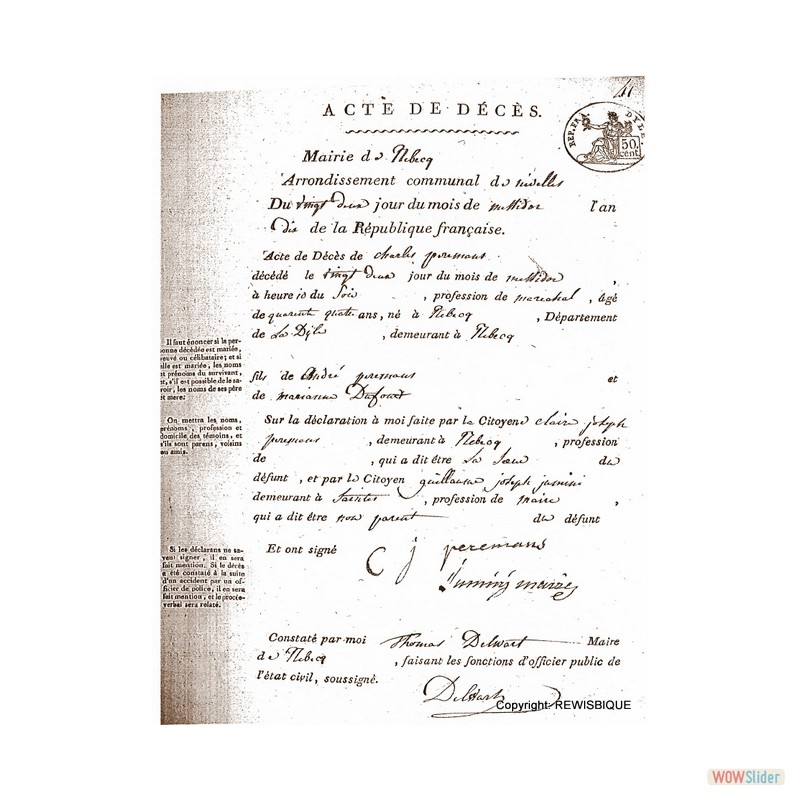 41
ACTE DE DÉCÈS.
REP. FRA DYLE
50. cent.
Mairie de Rebecq
Arrondissement communal de nivelles
Du vingt deux jour du mois de messidor l'an
dix de la République française.
Acte de Décès de charles peremans
décédé le vingt deux jour du mois de messidor ,
à heure 10 du Soir , profession de marechal , âgé
de quarente quatre ans, né à Rebecq , Département
de La Dÿle , demeurant à Rebecq
Il faut énoncer si la personne
décédée est mariée,
veuve ou célibataire; et si
elle est mariée, les noms
et prénoms du survivant,
et, s'il est possible de le savoir,
les noms de ses père
et mere.
fils de André peremans et
de marianne Dufour
On mettra les noms,
prénoms, profession et
domicile des témoins, et
s'ils sont parens, voisins
ou amis.
Sur la déclaration à moi faite par le Citoyene claire joseph
peremans , demeurant à Rebecq , profession
de , qui a dit être La Sœur du
défunt , et par le Citoyen guillaume joseph
demeurant à , profession de maire ,
qui a dit être non parent du défunt
Si les déclarans ne savent
signer, il en sera
fait mention. Si le décès
a été constaté à la suite
d'un accident par un officier
de police, il en sera
fait mention, et le procès-verbal
sera relaté.
Et ont signé C j peremans
maire
Constaté par moi Thomas Delwart Maire
de Rebecq , faisant les fonctions d'officier public de
l'état civil, soussigné.
Delwart
Copyright: REWISBIQUE
WOWSlider